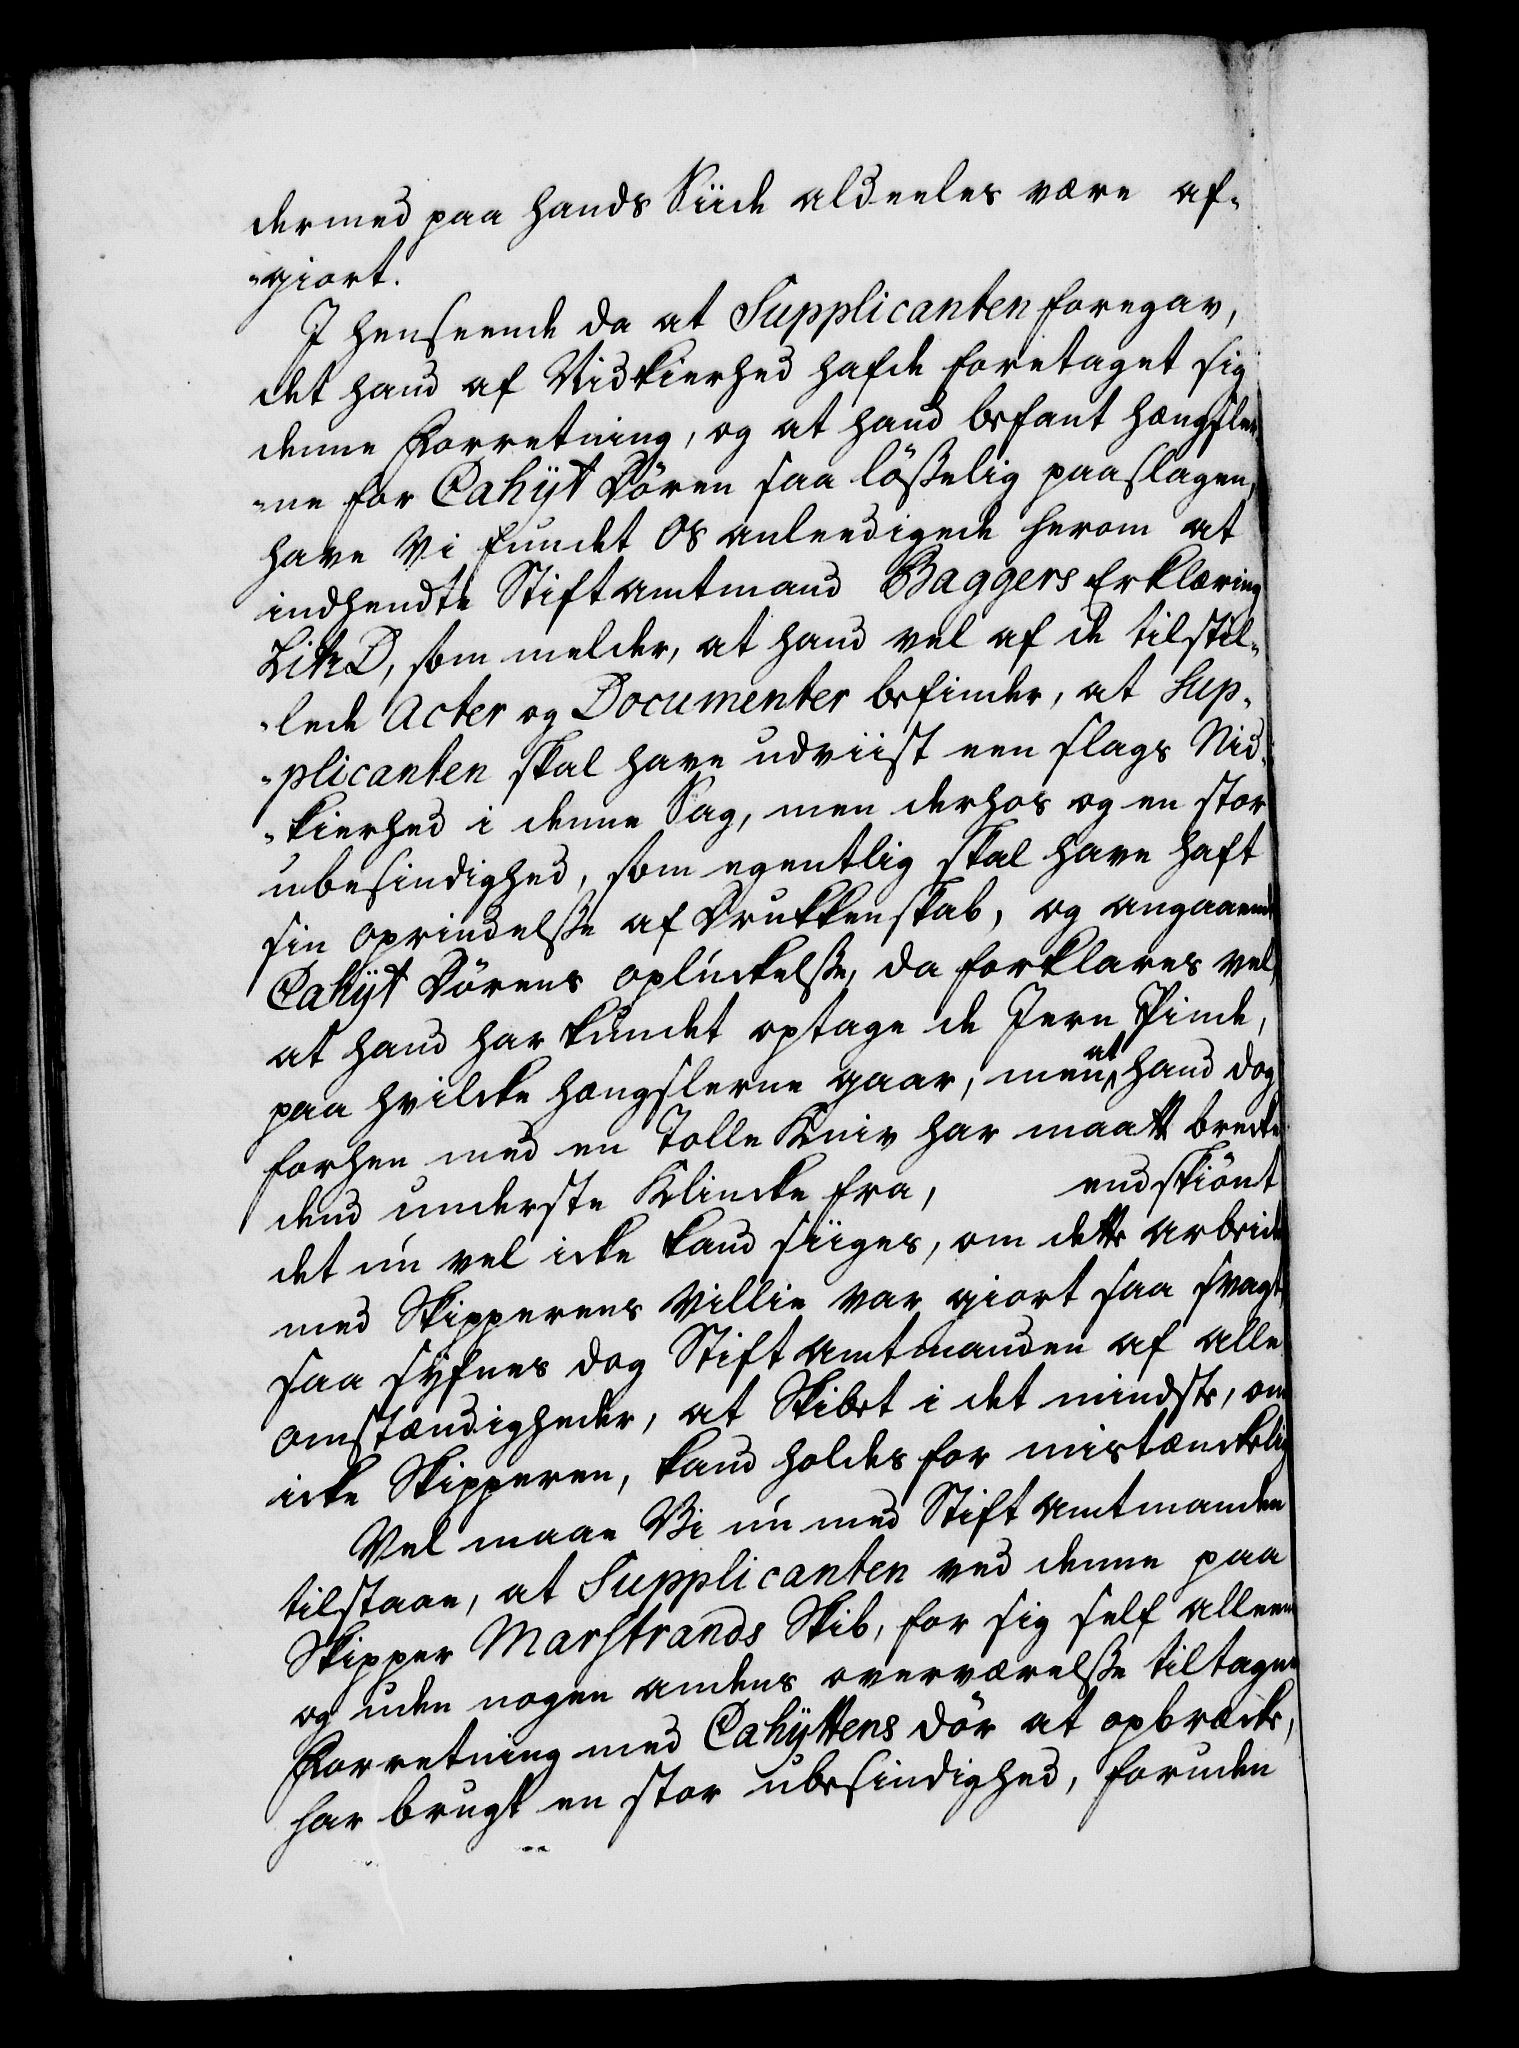 dermed paa hands Siide aldeeles være af-
-giort.
I henseende da at Supplicanten foregav,
det hand af Nidkierhed hafde foretaget sig
denne Forretning, og at hand befant hængsler-
-ne for Cahyt Dören saa lösselig paaslagen,
have Vi fundet os anleedigede herom at
indhendte Stiftamtmand Baggers Erklæring
Litr D, som melder, at hand vel af de tilstil-
-lede Acter og Documenter befinder, at Sup-
-plicanten skal have udviist een slags Nid-
-kierhed i denne Sag, men derhos og en stor
ubesindighed, som egentlig skal have haft
sin oprindelsse af Drukkenskab, og angaaende
Cahyt Dörens opluckelsse, da forklares vel,
at hand har kundet optage de Jern Pinde,
paa hvilcke hængslerne gaar, men at hand dog
forhen med en Tolle Kniv har maatt brecke
dend underste Klincke fra, endskiönt
det nu vel icke kand siiges, om dette arbeide
med Skipperens Villie var giort saa svagt,
saa syfnes dog Stiftamtmanden af alle
omstændigheder, at Skibet i det mindste, om
icke Skipperen, kand holdes for mistænckelig
Vel maae Vi nu med Stiftamtmanden
tilstaae, at Supplicanten ved denne paa
Skipper Marstrands Skib, for sig self alleene
og uden nogen andens overværelsse tiltagne
Forretning med Cahyttens dör at opbræcke,
har brugt en stor ubesindighed, foruden